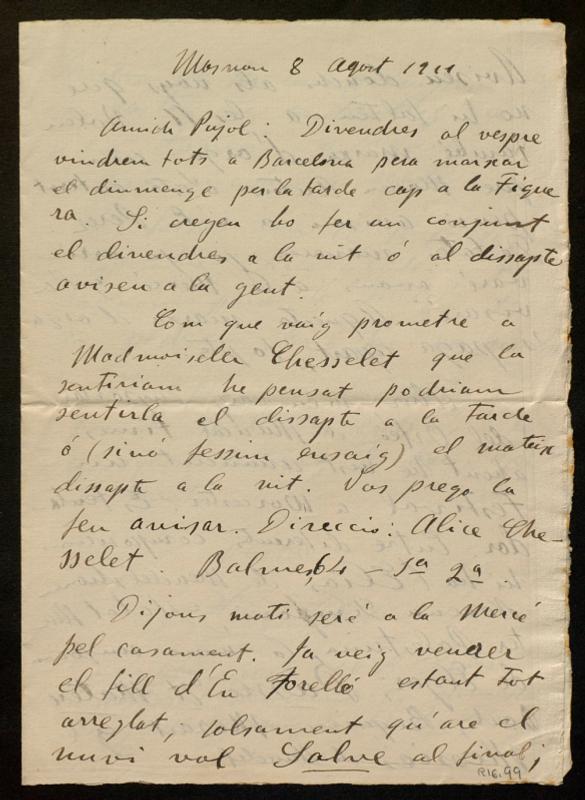 Masnou 8 Agost 1911
Amich Pujol: Divendres al vespre
vindrem tots a Barcelona pera marxar
el diumenge per la tarde cap a la Figue
ra. Si creyeu ho fer un conjunt
el divendres a la nit ó al dissapte
aviseu a la gent.
Com que vaig prometre a
Madmoiselle Chesselet que la
sentiriam he pensat podriam
sentirla el dissapte a la tarde
ó (sinó fessim ensaig) el mateix
dissapte a la nit. Vos prego la
feu avisar. Direcció: Alice Che-
sselet. Balmes, 64 - 1ª 2ª.
Dijous matí seré a la Mercé
pel casament. Ja veig
el fill d'En Forelló estant tot
arreglat, solsament qu'are el
nuvi vol Salve al final;
R16.99